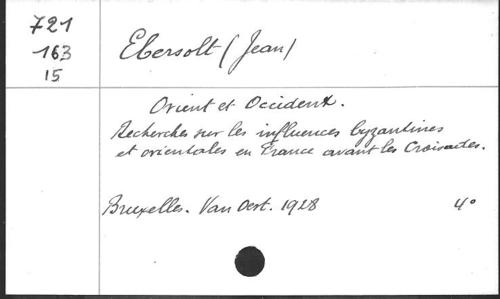 721
163
15
Ebersolt (Jean)
Orient et Occident.
Recherches sur les influences byzantines
et orientales en France avant les Croisades.
Bruxelles. Van Oest. 1928 4°